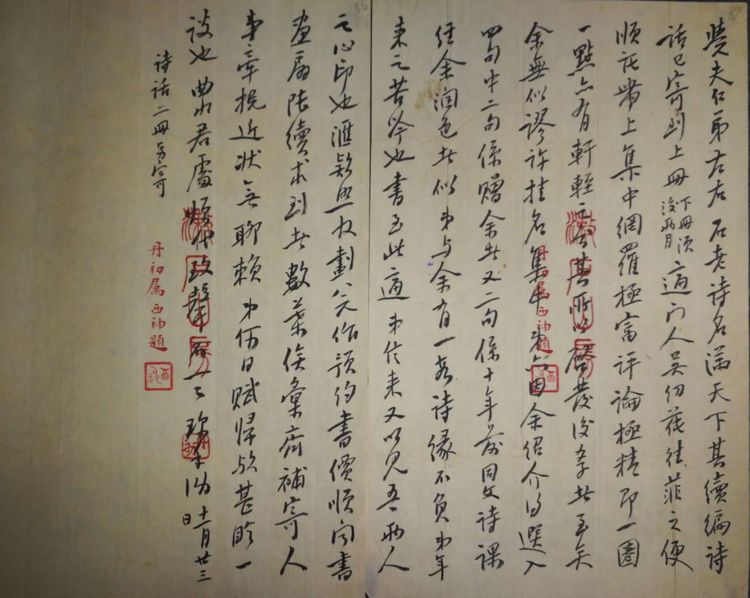 夫仁弟左右石老诗名满天下其续编诗
话已寄到上册下册须后两月适门人吴仞茂往菲之便
顺托带上集中网罗极富评论极精即一圈
一点亦有轩轾之其所以启发后学者至矣
余无似谬许挂名集中弟亦因余绍介得选入
四句中二句系赠余者又二句系十年前同文诗课
经余润色者似弟与余有一段诗缘不负弟年
来之苦吟也书至此适弟信来又以见吾两人
之心印也汇款照收划八元作预约书价顺向书
画扇陆续求到者数叶俟汇齐补寄人
事牵挽近状无聊赖弟何日赋归欤甚盼一
谈也曲君处顺代致声
十一月廿三日
诗话二册另寄
丹初属西神题